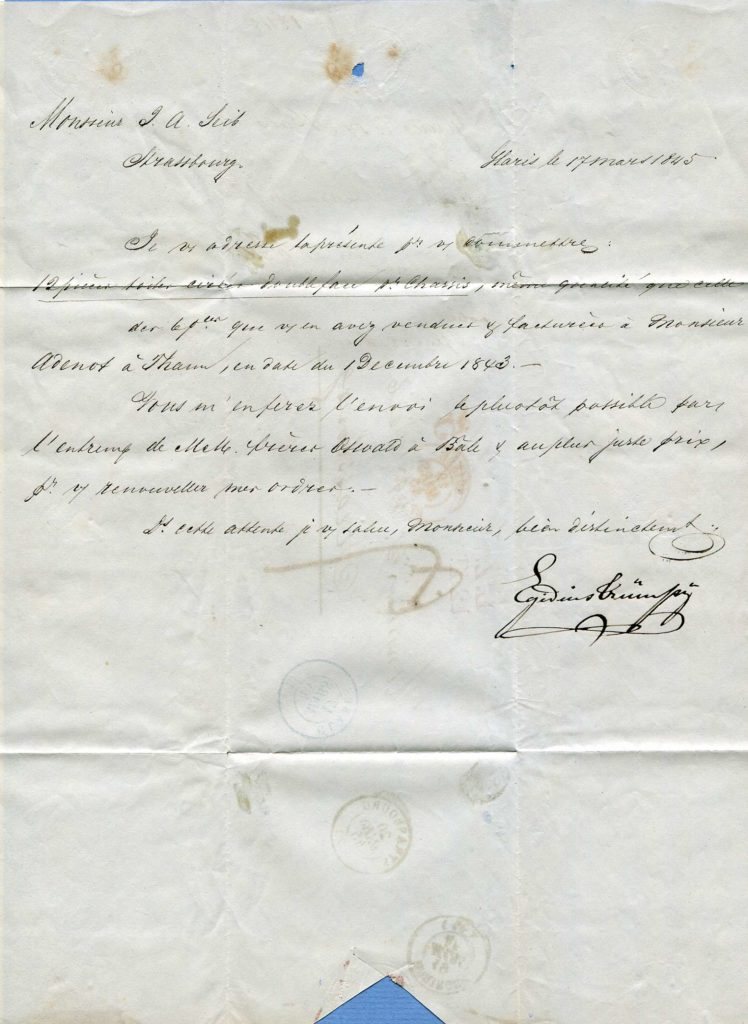 Monsieur J. A. Seib
Strasbourg.
Glaris le 17 mars 1845.
Je vs adresse la présente pr vs commettre:
12 pièces toiles cirées double face pr Chassis, même qualité que celle
des 6 pces que vs en avez vendues & facturées à Monsieur
Adenot à Thann, en date du 1 Decembre 1843.—
Vous m'en ferez l'envoi le plustôt possible par
l'entremp de Mess. frères Oswald à Bâle & au plus juste prix,
pr vs renouveller mes ordres.—
Ds cette attente je vs salue, Monsieur, bien distinctemt
Egidius Trümpÿ